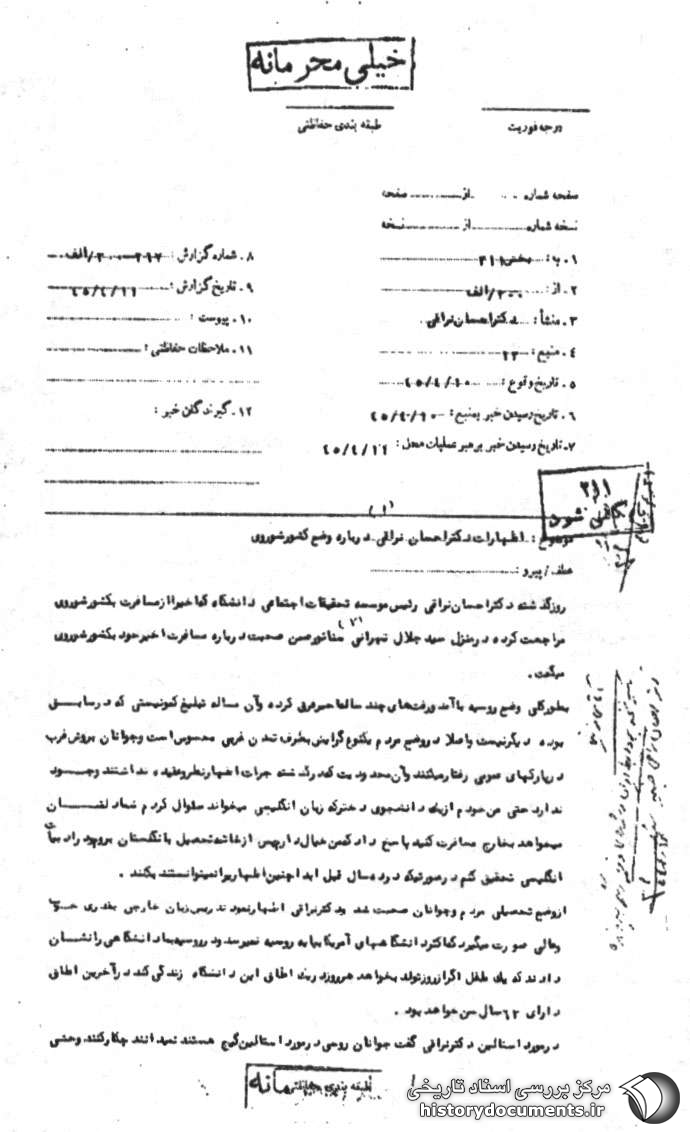 خیلی محرمانه
طبقه بندی حفاظتی
درجه فوریت
صفحه شماره از صفحه
نسخه شماره از نسخه
۱. به : بخش ۳۱۱
۲. از : ۲۰۰/الف
۳. منشأ : دکتر احسان نراقی
۴. منبع : ۲۲
۵. تاریخ وقوع : ۴۵/۴/۱۰
۶. تاریخ رسیدن خبر بمنبع : ۴۵/۴/۱۰
۷. تاریخ رسیدن خبر برهبر عملیات محل : ۴۵/۴/۱۱
۸. شماره گزارش : ۲۰۰/الف
۹. تاریخ گزارش : ۴۵/۴/۱۱
۱۰. پیوست :
۱۱. ملاحظات حفاظتی :
۱۲. گیرندگان خبر :
۳۱۱
(۱)
موضوع : اظهارات دکتر احسان نراقی درباره وضع کشور شوروی
عطف / پیرو :
روز گذشته دکتر احسان نراقی رئیس موسسه تحقیقات اجتماعی دانشگاه که اخیرا از مسافرت بکشور شوروی
مراجعت کرده در منزل سید جلال تهرانی (۲) سناتور ضمن صحبت درباره مسافرت اخیر خود بکشور شوروی
میگفت .
بطور کلی وضع روسیه با آمد و رفت های چند ساله خیر فرق کرده و آن مساله تبلیغ کمونیستی که در سابق
بوده دیگر نیست و اصلا در وضع مردم یکنوع گرایش بطرف تمدن غربی محسوس است و جوانان بروش غرب
در پارکهای عمومی رفتار میکنند و آن محدودیت که در گذشته جرات اظهار نظر و عقیده نداشتند وجود
ندارد حتی من خودم از یک دانشجوی دختر که زبان انگلیسی میخواند سئوال کردم شما دلتان
میخواهد بخارج مسافرت کنید پاسخ داد که من خیال دارم پس از خاتمه تحصیل بانگلستان بروم و در ادبیات
انگلیسی تحقیق کنم در صورتیکه در ده سال قبل ابدا چنین اظهاری را نمیتوانستند بکنند .
از وضع تحصیلی مردم و جوانان صحبت شد دکتر نراقی اظهار نمود تدریس زبان خارجی بقدری خوب
و عالی صورت میگیرد که اکثر دانشگاههای آمریکا بپای روسیه نمیرسد در روسیه بما دانشگاهی را نشان
دادند که یک طفل اگر از روز تولد بخواهد هر روز در یک اطاق این دانشگاه زندگی کند در آخرین اطاق
دارای ۶۲ سال سن خواهد بود .
در مورد استالین دکتر نراقی گفت جوانان روسی در مورد استالین گیج هستند نمیدانند چکار کنند وحشی
طبقه بندی حفاظتی
مرکز بررسی اسناد تاریخی
historydocuments.ir